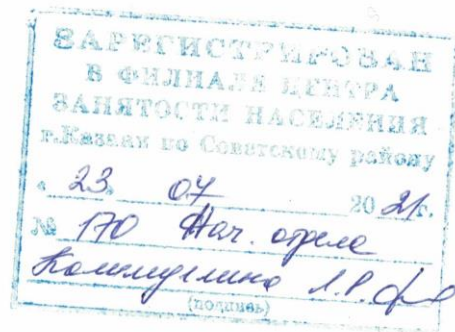 ЗАРЕГИСТРИРОВАН
В ФИЛИАЛЕ ЦЕНТРА
ЗАНЯТОСТИ НАСЕЛЕНИЯ
г.Казани по Советскому району
« 23. 07 2021г.
№ 170 Нач. отдела
Л.Р.
(подпись)